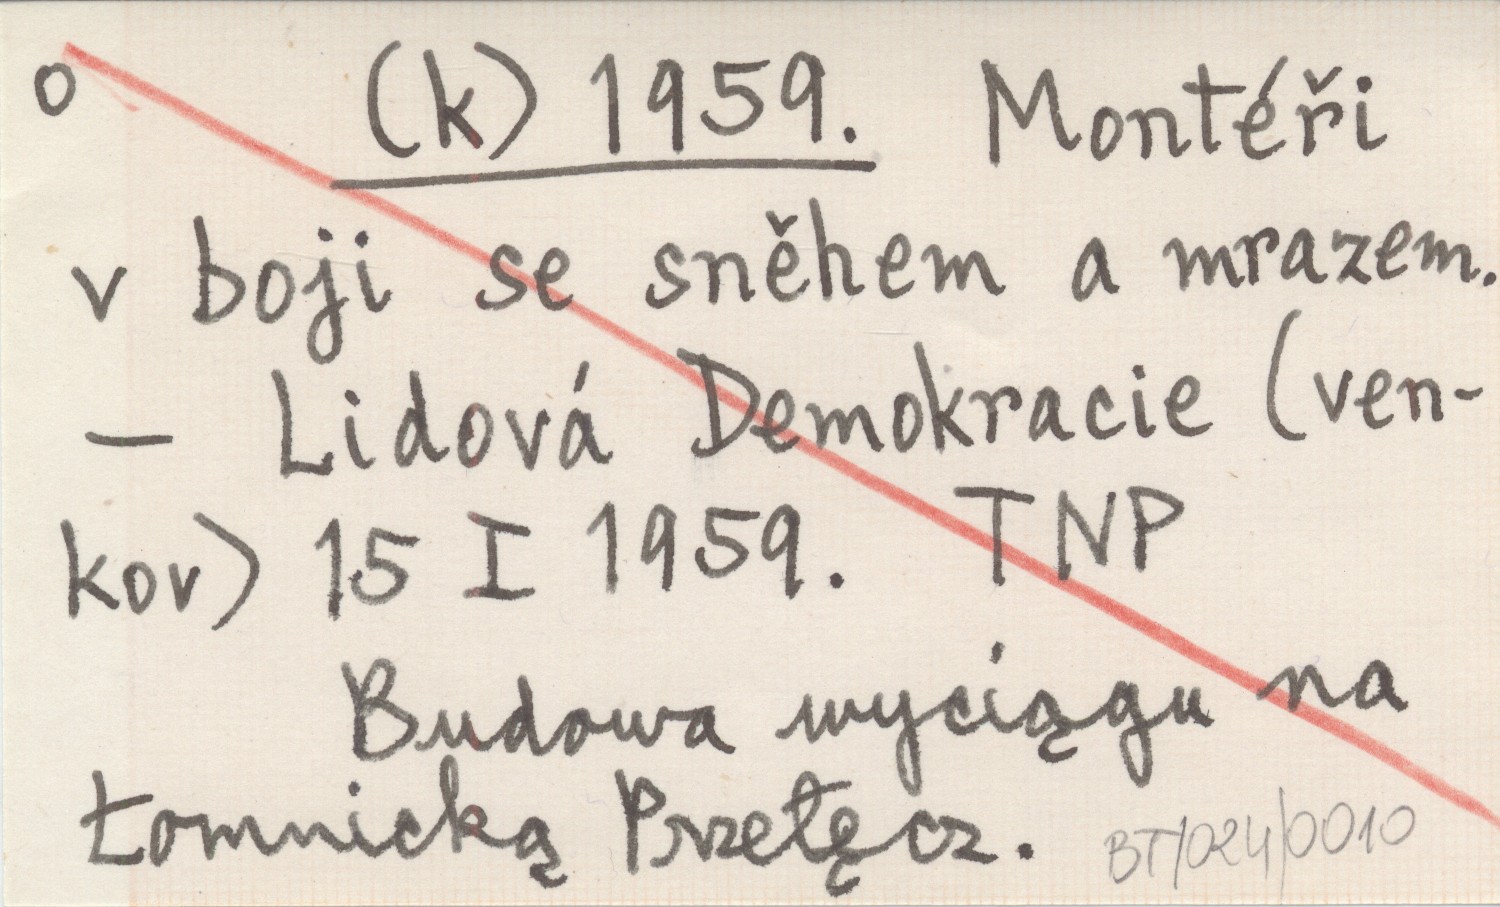 o (k) 1959. Montéři
v boji se sněhem a mrazem.
– Lidová Demokracie (ven-
kov) 15 I 1959. TNP
Budowa wyciągu na
Łomnicką Przełęcz.
BT/024/0010